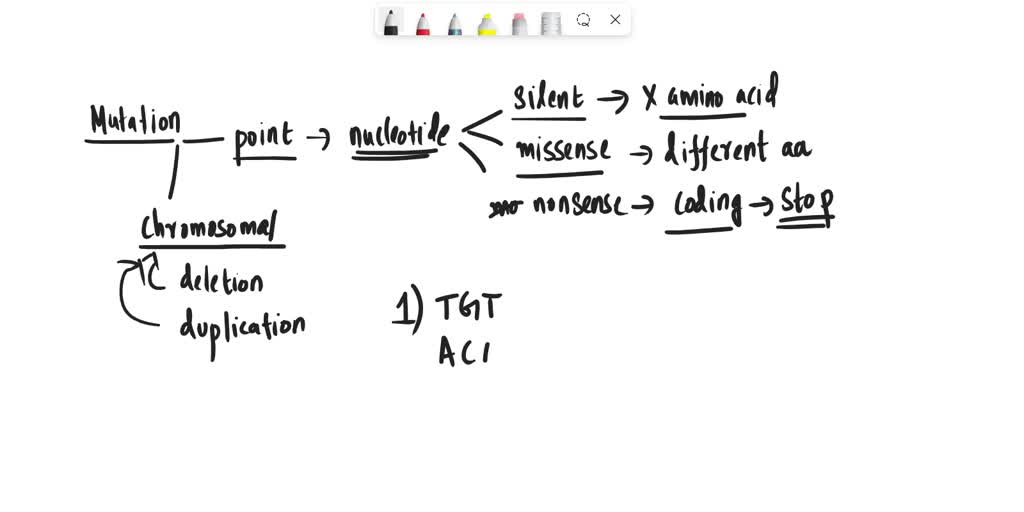 Mutation point → nucleotide
silent → X amino acid
missense → different aa
nonsense → coding → stop
chromosomal
deletion
duplication
1) TGT
AC